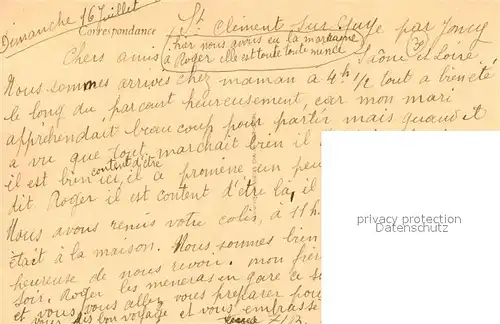 Dimanche 16 Juillet
St Clément sur Guye par Joncy
Correspondance
Saône et Loire
Chers amis
hier nous avons eu la marraine
a Roger elle est toute toute menue
Nous sommes arrivés chez maman a 4h 1/2 tout a bien été
le long du parcourt heureusement, car mon mari
appréhendait beaucoup pour partir mais quand il
a vu que tout marchait bien il
content d'être
il est bien ici, il ce promène un peu
dit Roger il est content d'être là, il
Nous avons remis votre colis, a 11 h.
était à la maison. Nous sommes bien
heureuse de nous revoir. mon
soir. Roger les meneras en gare ce
et vous vous allez vous préparer pour
bon voyage et vous embrasse
privacy protection
Datenschutz